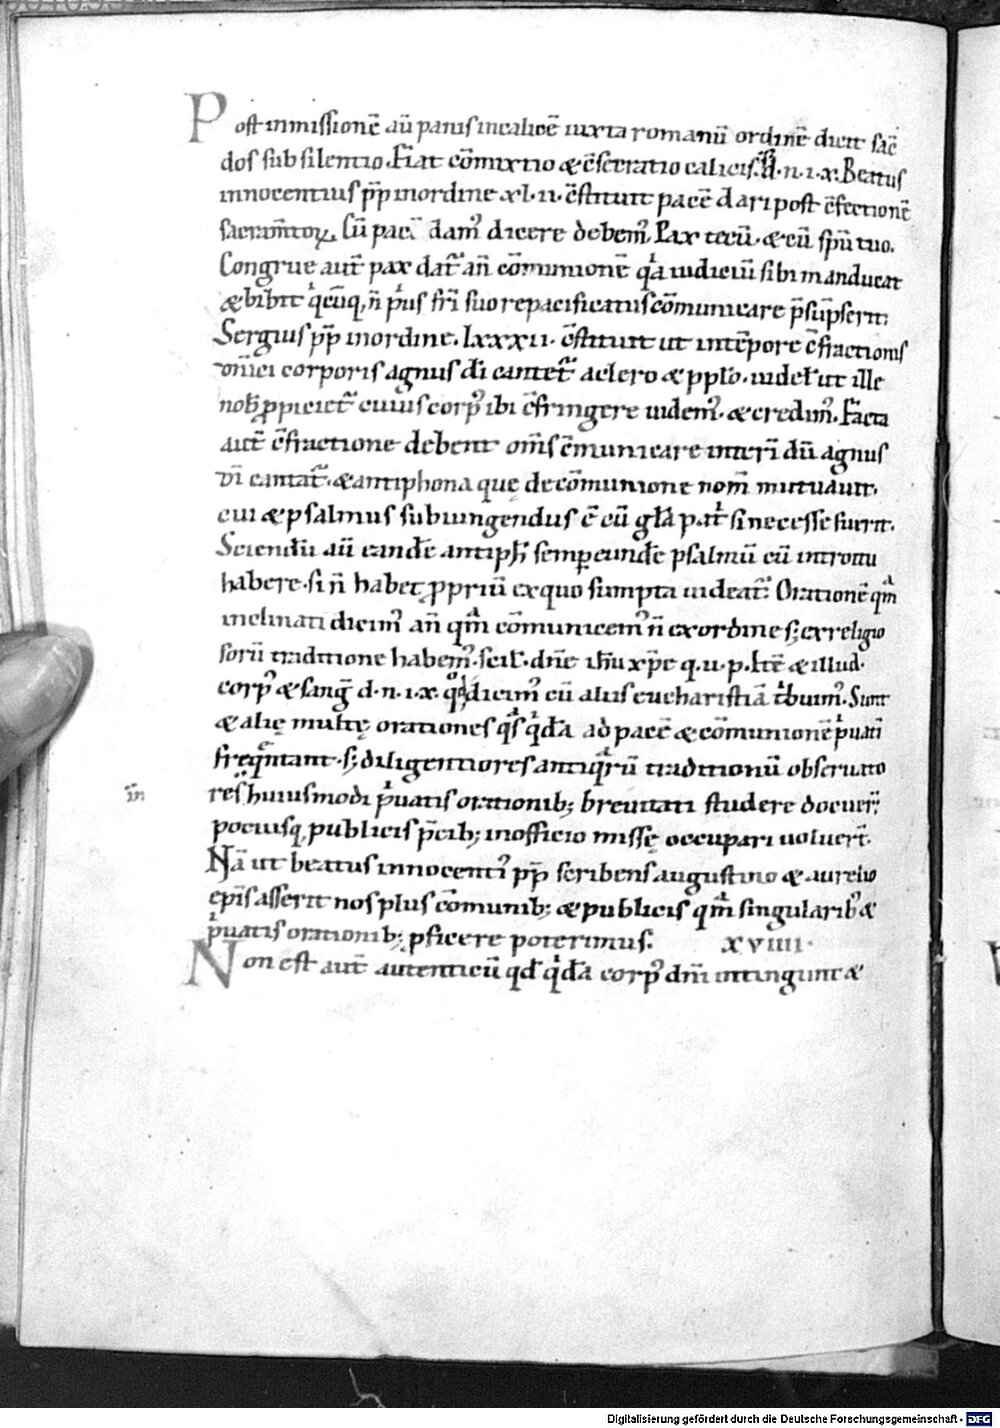 Post inmissionē aū panis incalicē iuxta romanū ordinē dicit sac̄
dos sub silentio. Fiat cōmixtio & c̄secratio calicis. d. n. i. x. Beatus
innocentius pp̄ inordine xl. ii. c̄stituit pacē dari post c̄fectionē
sacram̄toꝝ. Cū pacē dam᷒ dicere debem᷒. Pax tecū. & cū spū tuo.
Congrue aut̄ pax dat᷑ an̄ cōmunionē qͣa iudiciū sibi manducat
& bibit qͥcūq, n̄ pͥus fr̄i suo repacificatus cōmunicare p̄sūpserit.
Sergius pp̄ inordine. lxxxii. c̄stituit ut intēpore c̄fractionis
dn̄ici corporis agnus dī cantet᷑ aclero & pplo. uidel̄ ut ille
nob̄ ꝓpiciet᷑ cuius corp᷒ ibi c̄fringere uidem᷒. & credim᷒. Facta
aut̄ c̄fractione debent om̄s cōmunicare interī dū agnus
dī cantat᷑. & antiphona quę decōmunione nom̄ mutuauit.
cui & psalmus subiungendus ē cū gl̄a patͥ si necesse fuerit.
Sciendū aū eandē antiph̄ semp eundē psalmū cū introitu
habere. si n̄ habet ꝓpriū exquo sumpta uideat᷑. Orationē qͣm
inclinati dicim᷒ an̄ qͣm cōmunicem᷒ n̄ exordine s; exreligio
sorū traditione habem᷒. scil̄. dn̄e ih̄u xp̄e q. u. p. &illud.
corp᷒ & sang᷒ d. n. i. x. qͦd dicim᷒ cū aliis eucharistiā tͥbuim᷒. Sunt
& alię multę orationes qͣs qͥdā ad pacē & cōmunionē pͥuatī
freqͣntant. s; diligentiores antiqͣrū traditionū obseruato
res huiusmodi pͥuatis orationib; breuitati studere docuer̄.
in
pociusq, publicis p̄cib; inofficio missę occupari uoluer̄t.
Nā ut beatus innocenti᷒ pp̄ scribens augustino & aurelio
ep̄is asserit nos plus cōmunib; & publicis qͣm singularib; &
pͥuatis orationib; ꝓficere poterimus. xviiii.
Non est aut̄ autenticū qd̄ qͥdā corp᷒ dn̄i intingunt &
Digitalisierung gefördert durch die Deutsche Forschungsgemeinschaft - DFG